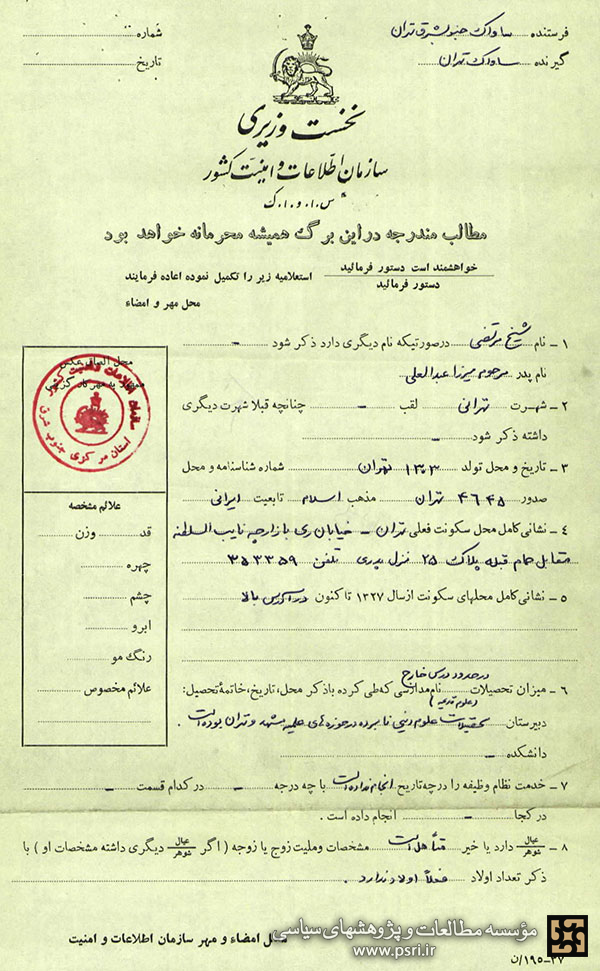 فرستنده ساواک جنوبشرق تهران
گیرنده ساواک تهران
شماره
تاریخ
نخست وزیری
سازمان اطلاعات و امنیت کشور
س.ا.و.ا.ک
مطالب مندرجه دراین برگ همیشه محرمانه خواهد بود
خواهشمند است دستور فرمائید
دستور فرمائید
استعلامیه زیر را تکمیل نموده اعاده فرمایند
محل مهر و امضاء
۱ - نام شیخ مرتضی درصورتیکه نام دیگری دارد ذکر شود -
نام پدر مرحوم میرزا عبدالعلی
۲ - شهرت تهرانی لقب - چنانچه قبلا شهرت دیگری
داشته ذکر شود -
۳ - تاریخ و محل تولد ۱۳۰۳ تهران شماره شناسنامه و محل
صدور ۴۶۴۵ تهران مذهب اسلام تابعیت ایرانی
۴ - نشانی کامل محل سکونت فعلی تهران - خیابان ری بازارچه نایب السلطنه
متقابل حمام قبله پلاک ۲۵ منزل پدری تلفن ۳۵۳۳۵۹
۵ - نشانی کامل محلهای سکونت از سال ۱۳۲۷ تا کنون در آدرس بالا
در حدود درس خارج
۶ - میزان تحصیلات نام مدارسی که طی کرده با ذکر محل، تاریخ، خاتمهٔ تحصیل:
(علوم قدیمه)
دبیرستان تحصیلات علوم دینی نامبرده در حوزه های علمیه مشهد و تهران بوده است.
دانشکده -
۷ - خدمت نظام وظیفه را درچه تاریخ انجام نداده است با چه درجه - در کدام قسمت -
در کجا - انجام داده است.
۸ - عیال/شوهر دارد یا خیر متأهل است مشخصات وملیت زوج یا زوجه (اگر عیال/شوهر دیگری داشته مشخصات او) با
ذکر تعداد اولاد فعلاً اولاد ندارد.
محل الصاق عکس
ممهور به مهر
سازمان اطلاعات و امنیت کشور
استان مرکزی جنوب شرق
علائم مشخصه
قد وزن
چهره
چشم
ابرو
رنگ مو
علائم مخصوص
محل امضاء و مهر سازمان اطلاعات و امنیت
۳۷-۱۹۵/ن
مؤسسه مطالعات و پژوهشهای سیاسی
www.psri.ir